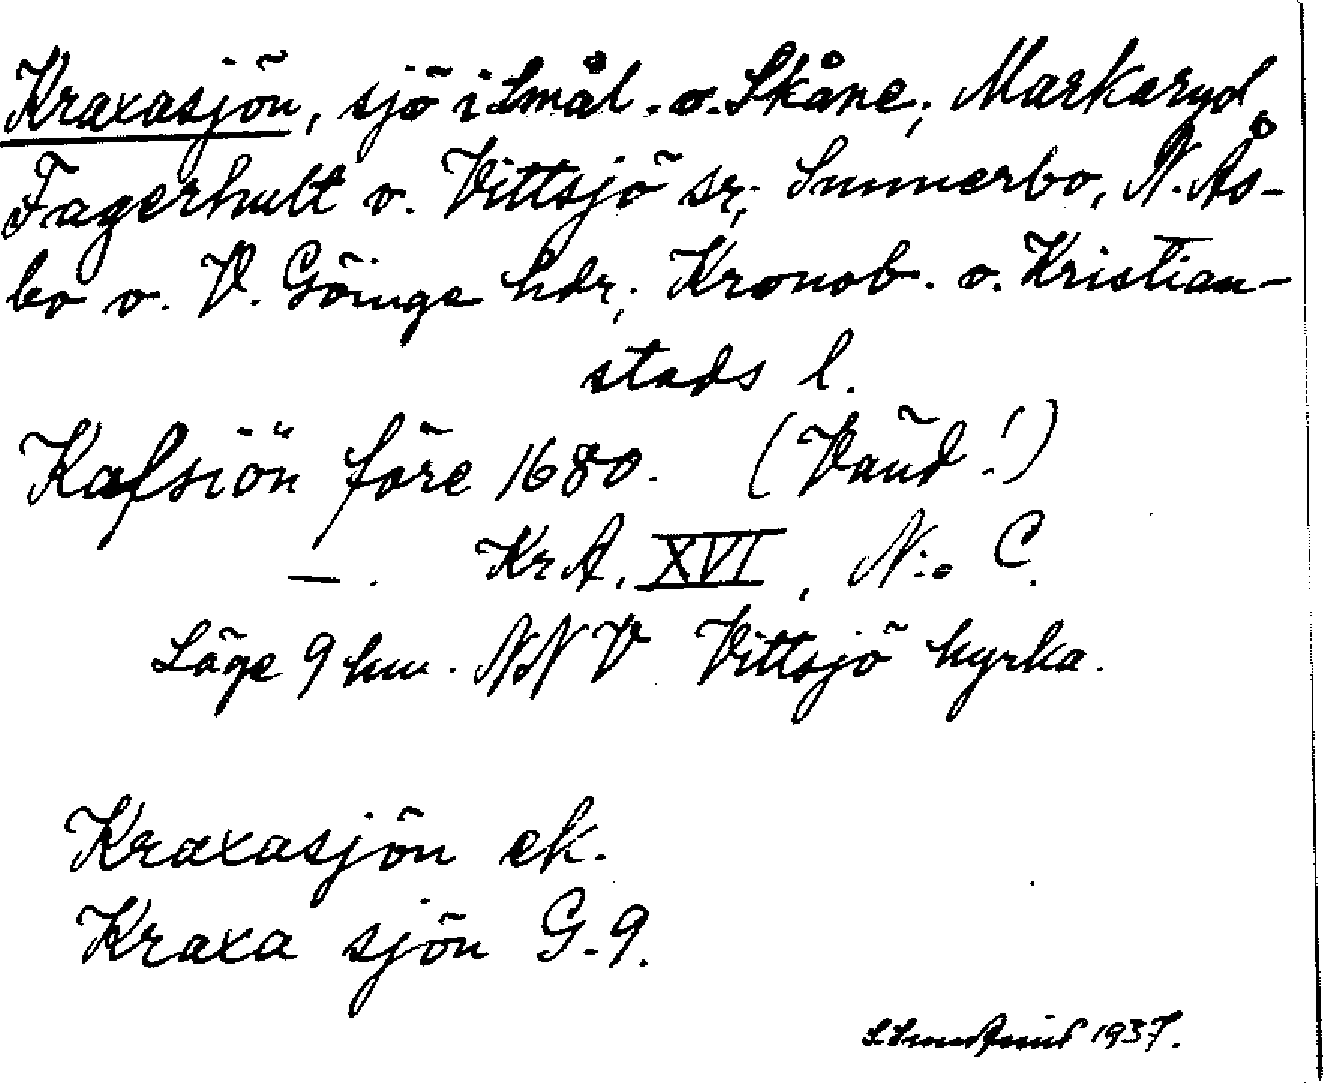 Kraxasjön, sjö i Smål. o. Skåne; Markaryd,
Fagerhult o. Vittsjö sr; Sunnerbo, N. Ås-
bo o. V. Göinge hdr; Kronob. o. Kristian-
stads l.
Kafsiön före 1680. (Vänd!)
—. KrA. XVI, N:o C.
Läge 9 km. NNV Vittsjö kyrka.
Kraxasjön ek.
Kraxa sjön G.9.
1937.